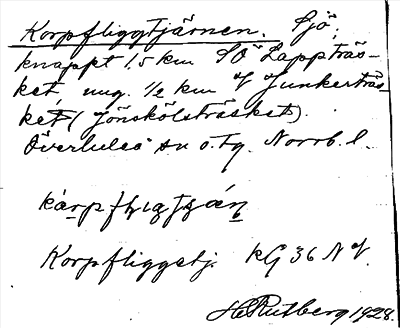 Korpfliggtjärnen. Sjö,
knappt 1,5 km SÖ Lappträs-
ket, ung. 1/2 km V Junkerträs-
ket (Jönskölsträsket).
Överluleå sn o. tg. Norrb. l.
Korpfliggetj. kG 36 N V.
H Rutberg 1928.